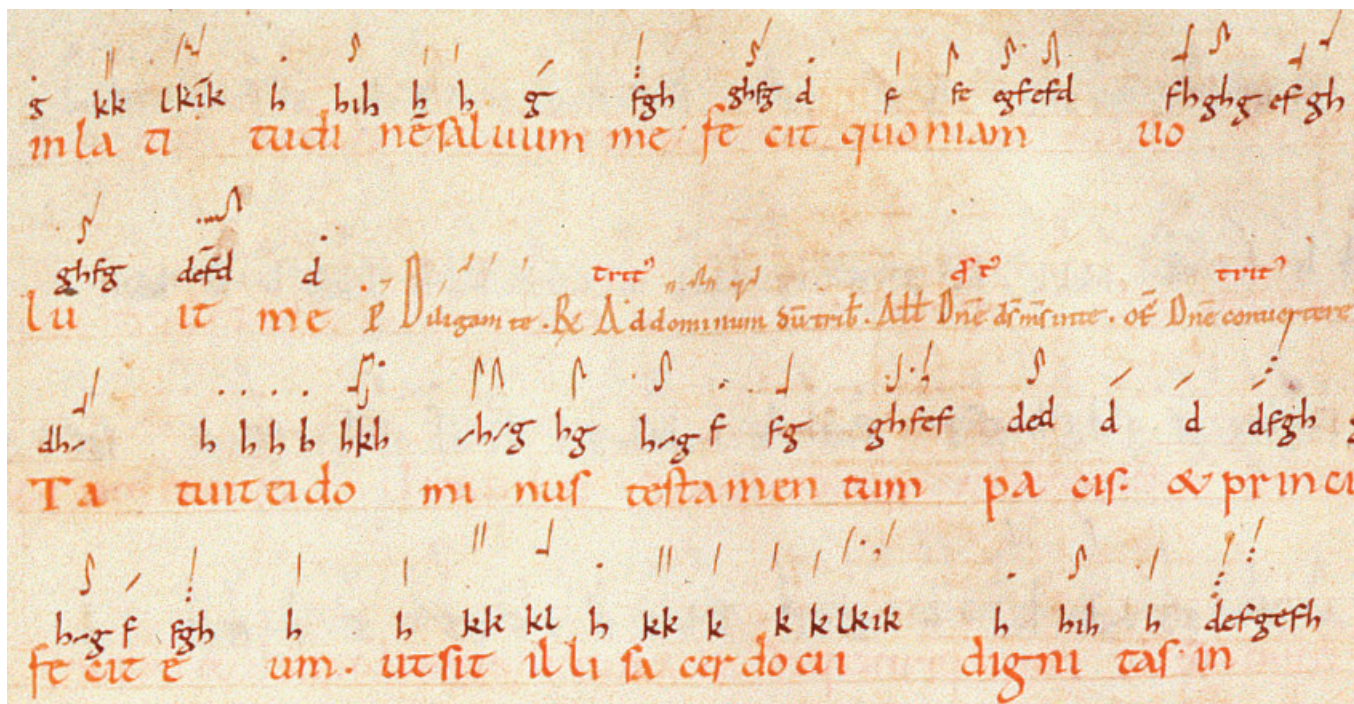 g kk lkik h hih h h g fgh ghfg d f fe egfefd fhghg ef gh
in la ti tudi nē saluum me · fe cit quoniam uo
ghfg defd d
trit⁹ trit⁹
lu it me · Diligam te · Ad dominum Dn̄e conuertere
dh h h h h hkh h g hg h g f fg ghfef ded d d dfgh
Ta tuit ei do mi nus testamen tum pa cis · & prin ci
h g f fgh h h kk kl h kk k k k lkik h hih h defgefh
fe cit e um · ut sit il li sa cer do cii digni tas · in